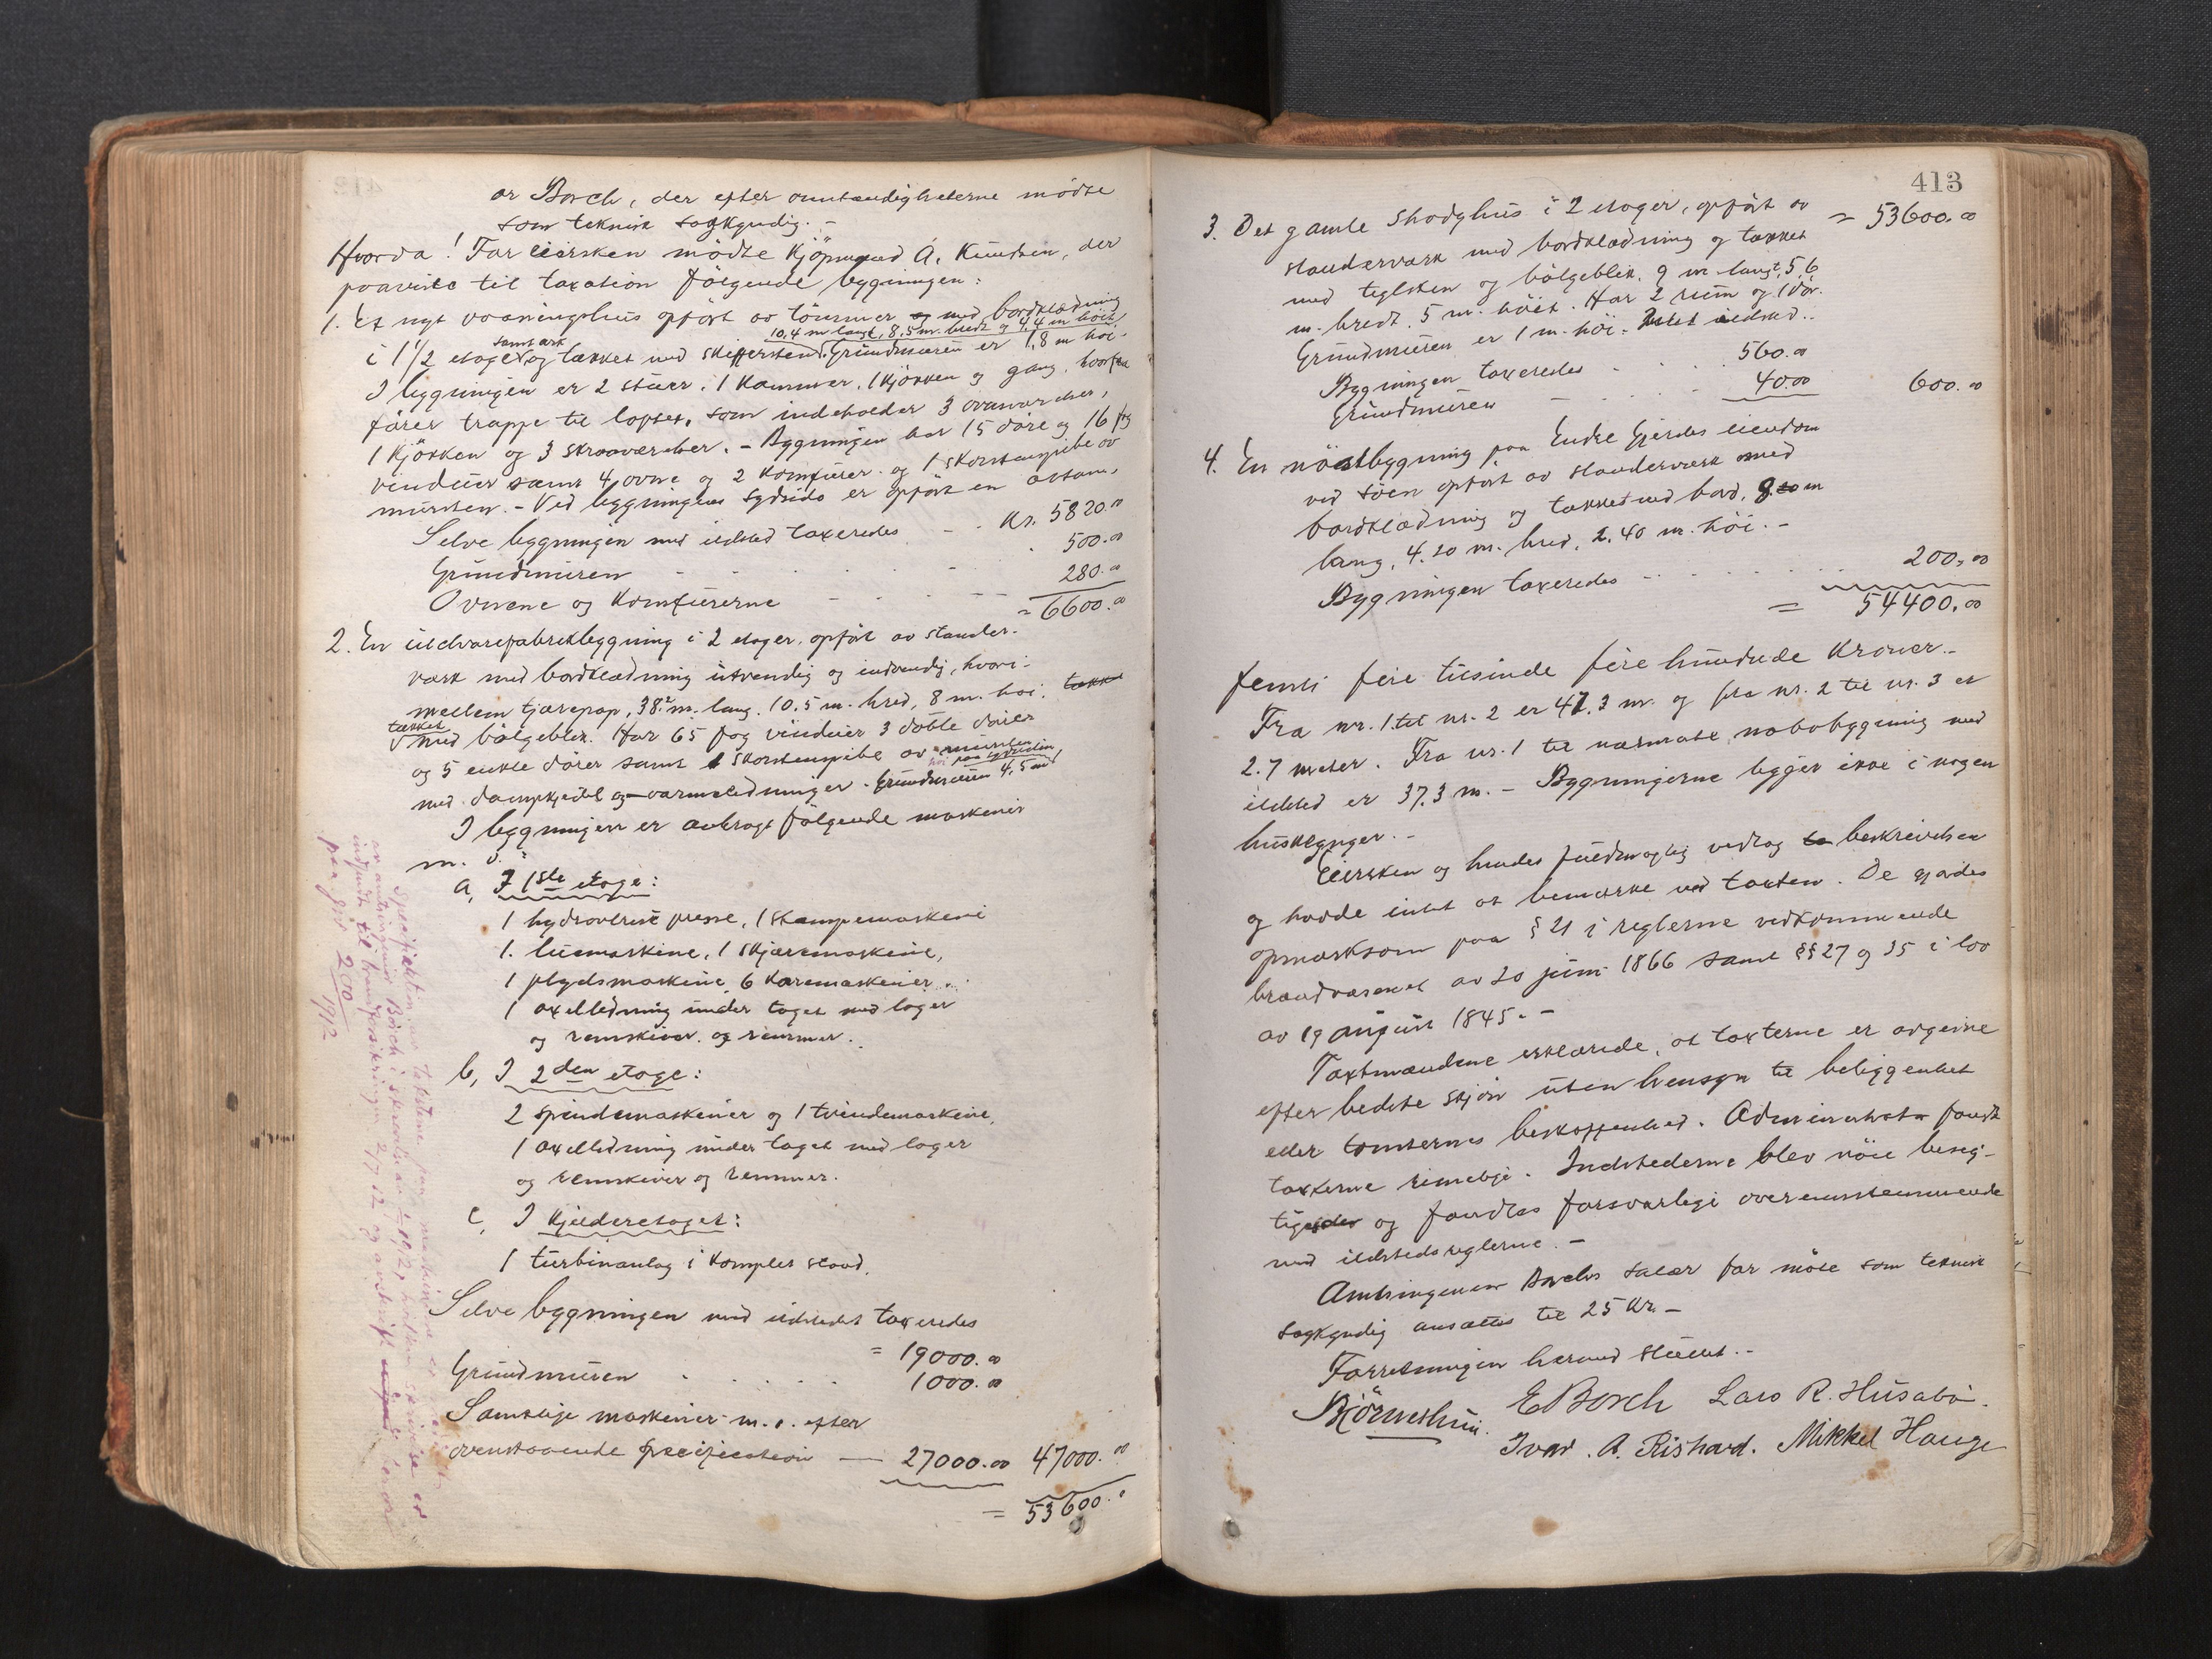 ør Borch, der efter omstændigheterne mödte
som teknisk sagkyndig. -
Hvorda! For eiersken mödte Kjöpmand A. Knudsen, der
paaviste til taxation fölgende bygninger:
1. Et nyt vaaningshus opfört av tömmer og med bordklædning
10,4 m langt, 8,5 m. bredt og 4,4 m höit
i 1 1/2 etage samt ark og tækket med skiffersten. Grundmuren er 1,8 m höi.
I bygningen er 2 stuer, 1 kammer, 1 kjökken og gang, hvorfra
förer trappe til loftet, som indeholder 3
1 kjökken og 3 skraaværelser. - Bygningen har 15 döre og 16 fag
vinduer samt 4 ovne og 2 komfurer og 1 skorstenspibe av
mursten. - Ved bygningens sydside er opfört en
Selve bygningen med ildsted taxeredes - . Kr. 5820.00
Grundmuren - . . . . 500.00
Ovnene og komfurerne - . . - 280.00
= 6600.00
2. En uldvarefabrikbygning i 2 etager, opfört av stander-
værk med bordklædning utvendig og indvendig, hvori-
mellem tjærepap, 38.2 m. lang, 10.5 m. bred, 8 m. höi, tække
tækket med bölgeblik. Har 65 fag vinduer 3 doble dörer
og 5 enkle dörer samt 1 skorstenspibe av mursten
höi paa sydsiden
med dampkjedel og varmeledninger. Grundmuren 4,5 m
I bygningen er anbragt fölgende maskiner
m. v.:
a, I 1ste etage:
1 hydraulisk presse, 1 stampemaskine
1. luemaskine, 1 skjæremaskine,
1 plydsmaskine, 6 karemaskiner.
1 axelledning under taget med lager
og remskiver og remmer.
b, I 2den etage:
2 spindemaskiner og 1 tvindemaskine,
1 axelledning under taget med lager
og remskiver og remmer.
c, I kjelderetagen:
1 turbinanlæg i komplet stand.
Selve bygningen med ildstedet taxeredes
= 19000.00
Grundmuren . . . . . 1000.00
Samtlige maskiner m. v. efter
ovenstaaende specification — 27000.00 47000.00
= 53600.00
Specifiktion over taksterne paa maskinene er
av amtsingeniör Borch i skrivelse av 1912, hvilken skrivelse er
indsendt til brandforsikringen 2/7 12 og avskrift
paa gjr 200/1912
413
3. Det gamle Shodyhus i 2 etager, opfört av = 53600.00
standerværk med bordklædning og tækket
med teglsten og bölgeblik. 9 m langt, 5,6
m. bredt, 5 m. höit. Har 2 rum og 1 dör.
Grundmuren er 1 m. höi. Intet ildsted.
Bygningen taxeredes . . . 560.00
Grundmuren — . . - 40.00 600.00
4. En nöstbygning paa Endre Gjerdes eiendom
ved söen opfört av standerværk med
bordklædning og tækket med bord, 8 m
lang, 4.20 m. bred, 2.40 m. höi. -
Bygningen taxeredes - . . . . 200.00
= 54400.00
femti fire tusinde fire hundrede Kroner. -
Fra nr. 1 til nr. 2 er 47.3 m. og fra nr. 2 til nr. 3 er
2.7 meter. Fra nr. 1 til nærmeste nabobygning med
ildsted er 37.3 m. - Bygningerne ligger ikke i nogen
husklynger. -
Eiersken og hendes fuldmægtig vedtog beskrivelsen
og hadde intet at bemerke ved taxten. De gjordes
opmerksom paa § 21 i reglerne vedkommende
brandvæsenet av 20 juni 1866 samt §§ 27 og 35 i lov
av 19 august 1845. -
Taxtmændene erklærede, at taxterne er avgivne
efter bedste skjön uten hensyn til beliggenhet
eller tomternes beskaffenhed. Administrator fandt
taxterne rimelige. Ildstederne blev nöie besig-
tiget og fandtes forsvarlige overensstemmende
med ildstedsreglerne. -
Amtsingeniör Borchs salær for möte som teknisk
sagkyndig ansættes til 25 Kr. -
Forretningen hermed sluttet. -
Björnethun. E Borch Lars R. Husabö.
Ivar. A. Rishard. Mikkel Hauge